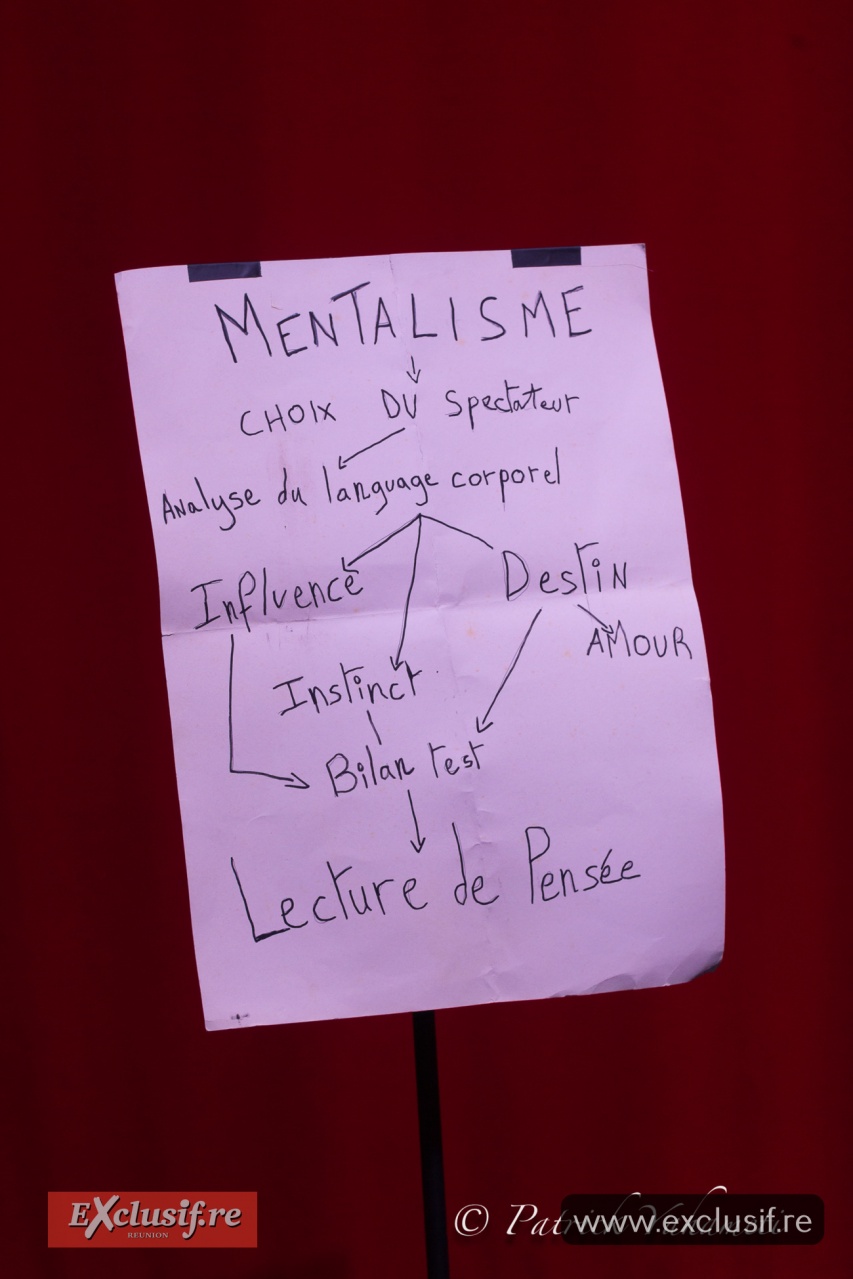 MENTALISME
CHOIX DU Spectateur
Analyse du language corporel
Influence
Destin
AMOUR
Instinct
Bilan test
Lecture de Pensée
EXclusif.re
REUNION
©
www.exclusif.re